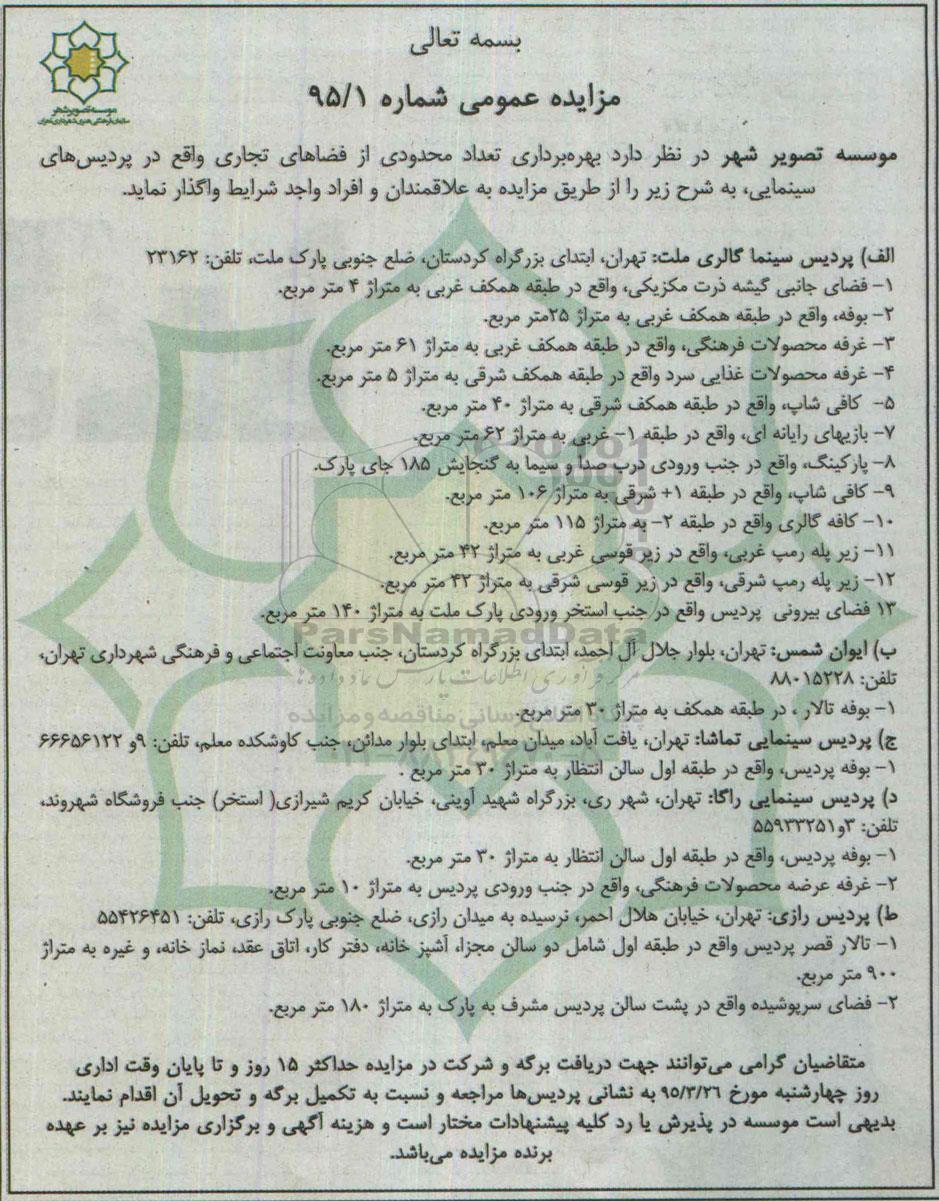 بسمه تعالی
موسسه تصویر شهر
سازمان فرهنگی هنری شهرداری تهران
مزایده عمومی شماره ۹۵/۱
موسسه تصویر شهر در نظر دارد بهره‌برداری تعداد محدودی از فضاهای تجاری واقع در پردیس‌های
سینمایی، به شرح زیر را از طریق مزایده به علاقمندان و افراد واجد شرایط واگذار نماید.
الف) پردیس سینما گالری ملت: تهران، ابتدای بزرگراه کردستان، ضلع جنوبی پارک ملت، تلفن: ۲۳۱۶۲
۱- فضای جانبی گیشه ذرت مکزیکی، واقع در طبقه همکف غربی به متراژ ۴ متر مربع.
۲- بوفه، واقع در طبقه همکف غربی به متراژ ۲۵متر مربع.
۳- غرفه محصولات فرهنگی، واقع در طبقه همکف غربی به متراژ ۶۱ متر مربع.
۴- غرفه محصولات غذایی سرد واقع در طبقه همکف شرقی به متراژ ۵ متر مربع.
۵- کافی شاپ، واقع در طبقه همکف شرقی به متراژ ۴۰ متر مربع.
۷- بازیهای رایانه ای، واقع در طبقه ۱- غربی به متراژ ۶۲ متر مربع.
۸- پارکینگ، واقع در جنب ورودی درب صدا و سیما به گنجایش ۱۸۵ جای پارک.
۹- کافی شاپ، واقع در طبقه ۱+ شرقی به متراژ ۱۰۶ متر مربع.
۱۰- کافه گالری واقع در طبقه ۲- به متراژ ۱۱۵ متر مربع.
۱۱- زیر پله رمپ غربی، واقع در زیر قوسی غربی به متراژ ۴۲ متر مربع.
۱۲- زیر پله رمپ شرقی، واقع در زیر قوسی شرقی به متراژ ۴۲ متر مربع.
۱۳ فضای بیرونی پردیس واقع در جنب استخر ورودی پارک ملت به متراژ ۱۴۰ متر مربع.
ParsNamadData
ب) ایوان شمس: تهران، بلوار جلال آل احمد، ابتدای بزرگراه کردستان، جنب معاونت اجتماعی و فرهنگی شهرداری تهران،
تلفن: ۸۸۰۱۵۲۲۸
مرکز فرآوری اطلاعات پارس نماد داده‌ها
۱- بوفه تالار ، در طبقه همکف به متراژ ۳۰ متر مربع.
ج) پردیس سینمایی تماشا: تهران، یافت آباد، میدان معلم، ابتدای بلوار مدائن، جنب کاوشکده معلم، تلفن: ۹و ۶۶۶۵۶۱۲۲
۱- بوفه پردیس، واقع در طبقه اول سالن انتظار به متراژ ۳۰ متر مربع .
د) پردیس سینمایی راگا: تهران، شهر ری، بزرگراه شهید آوینی، خیابان کریم شیرازی( استخر) جنب فروشگاه شهروند،
تلفن: ۳و۵۵۹۳۳۲۵۱
۱- بوفه پردیس، واقع در طبقه اول سالن انتظار به متراژ ۳۰ متر مربع.
۲- غرفه عرضه محصولات فرهنگی، واقع در جنب ورودی پردیس به متراژ ۱۰ متر مربع.
ط) پردیس رازی: تهران، خیابان هلال احمر، نرسیده به میدان رازی، ضلع جنوبی پارک رازی، تلفن: ۵۵۴۲۶۴۵۱
۱- تالار قصر پردیس واقع در طبقه اول شامل دو سالن مجزا، آشپز خانه، دفتر کار، اتاق عقد، نماز خانه، و غیره به متراژ
۹۰۰ متر مربع.
۲- فضای سرپوشیده واقع در پشت سالن پردیس مشرف به پارک به متراژ ۱۸۰ متر مربع.
متقاضیان گرامی می‌توانند جهت دریافت برگه و شرکت در مزایده حداکثر ۱۵ روز و تا پایان وقت اداری
روز چهارشنبه مورخ ۹۵/۳/۲٦ به نشانی پردیس‌ها مراجعه و نسبت به تکمیل برگه و تحویل آن اقدام نمایند.
بدیهی است موسسه در پذیرش یا رد کلیه پیشنهادات مختار است و هزینه آگهی و برگزاری مزایده نیز بر عهده
برنده مزایده می‌باشد.